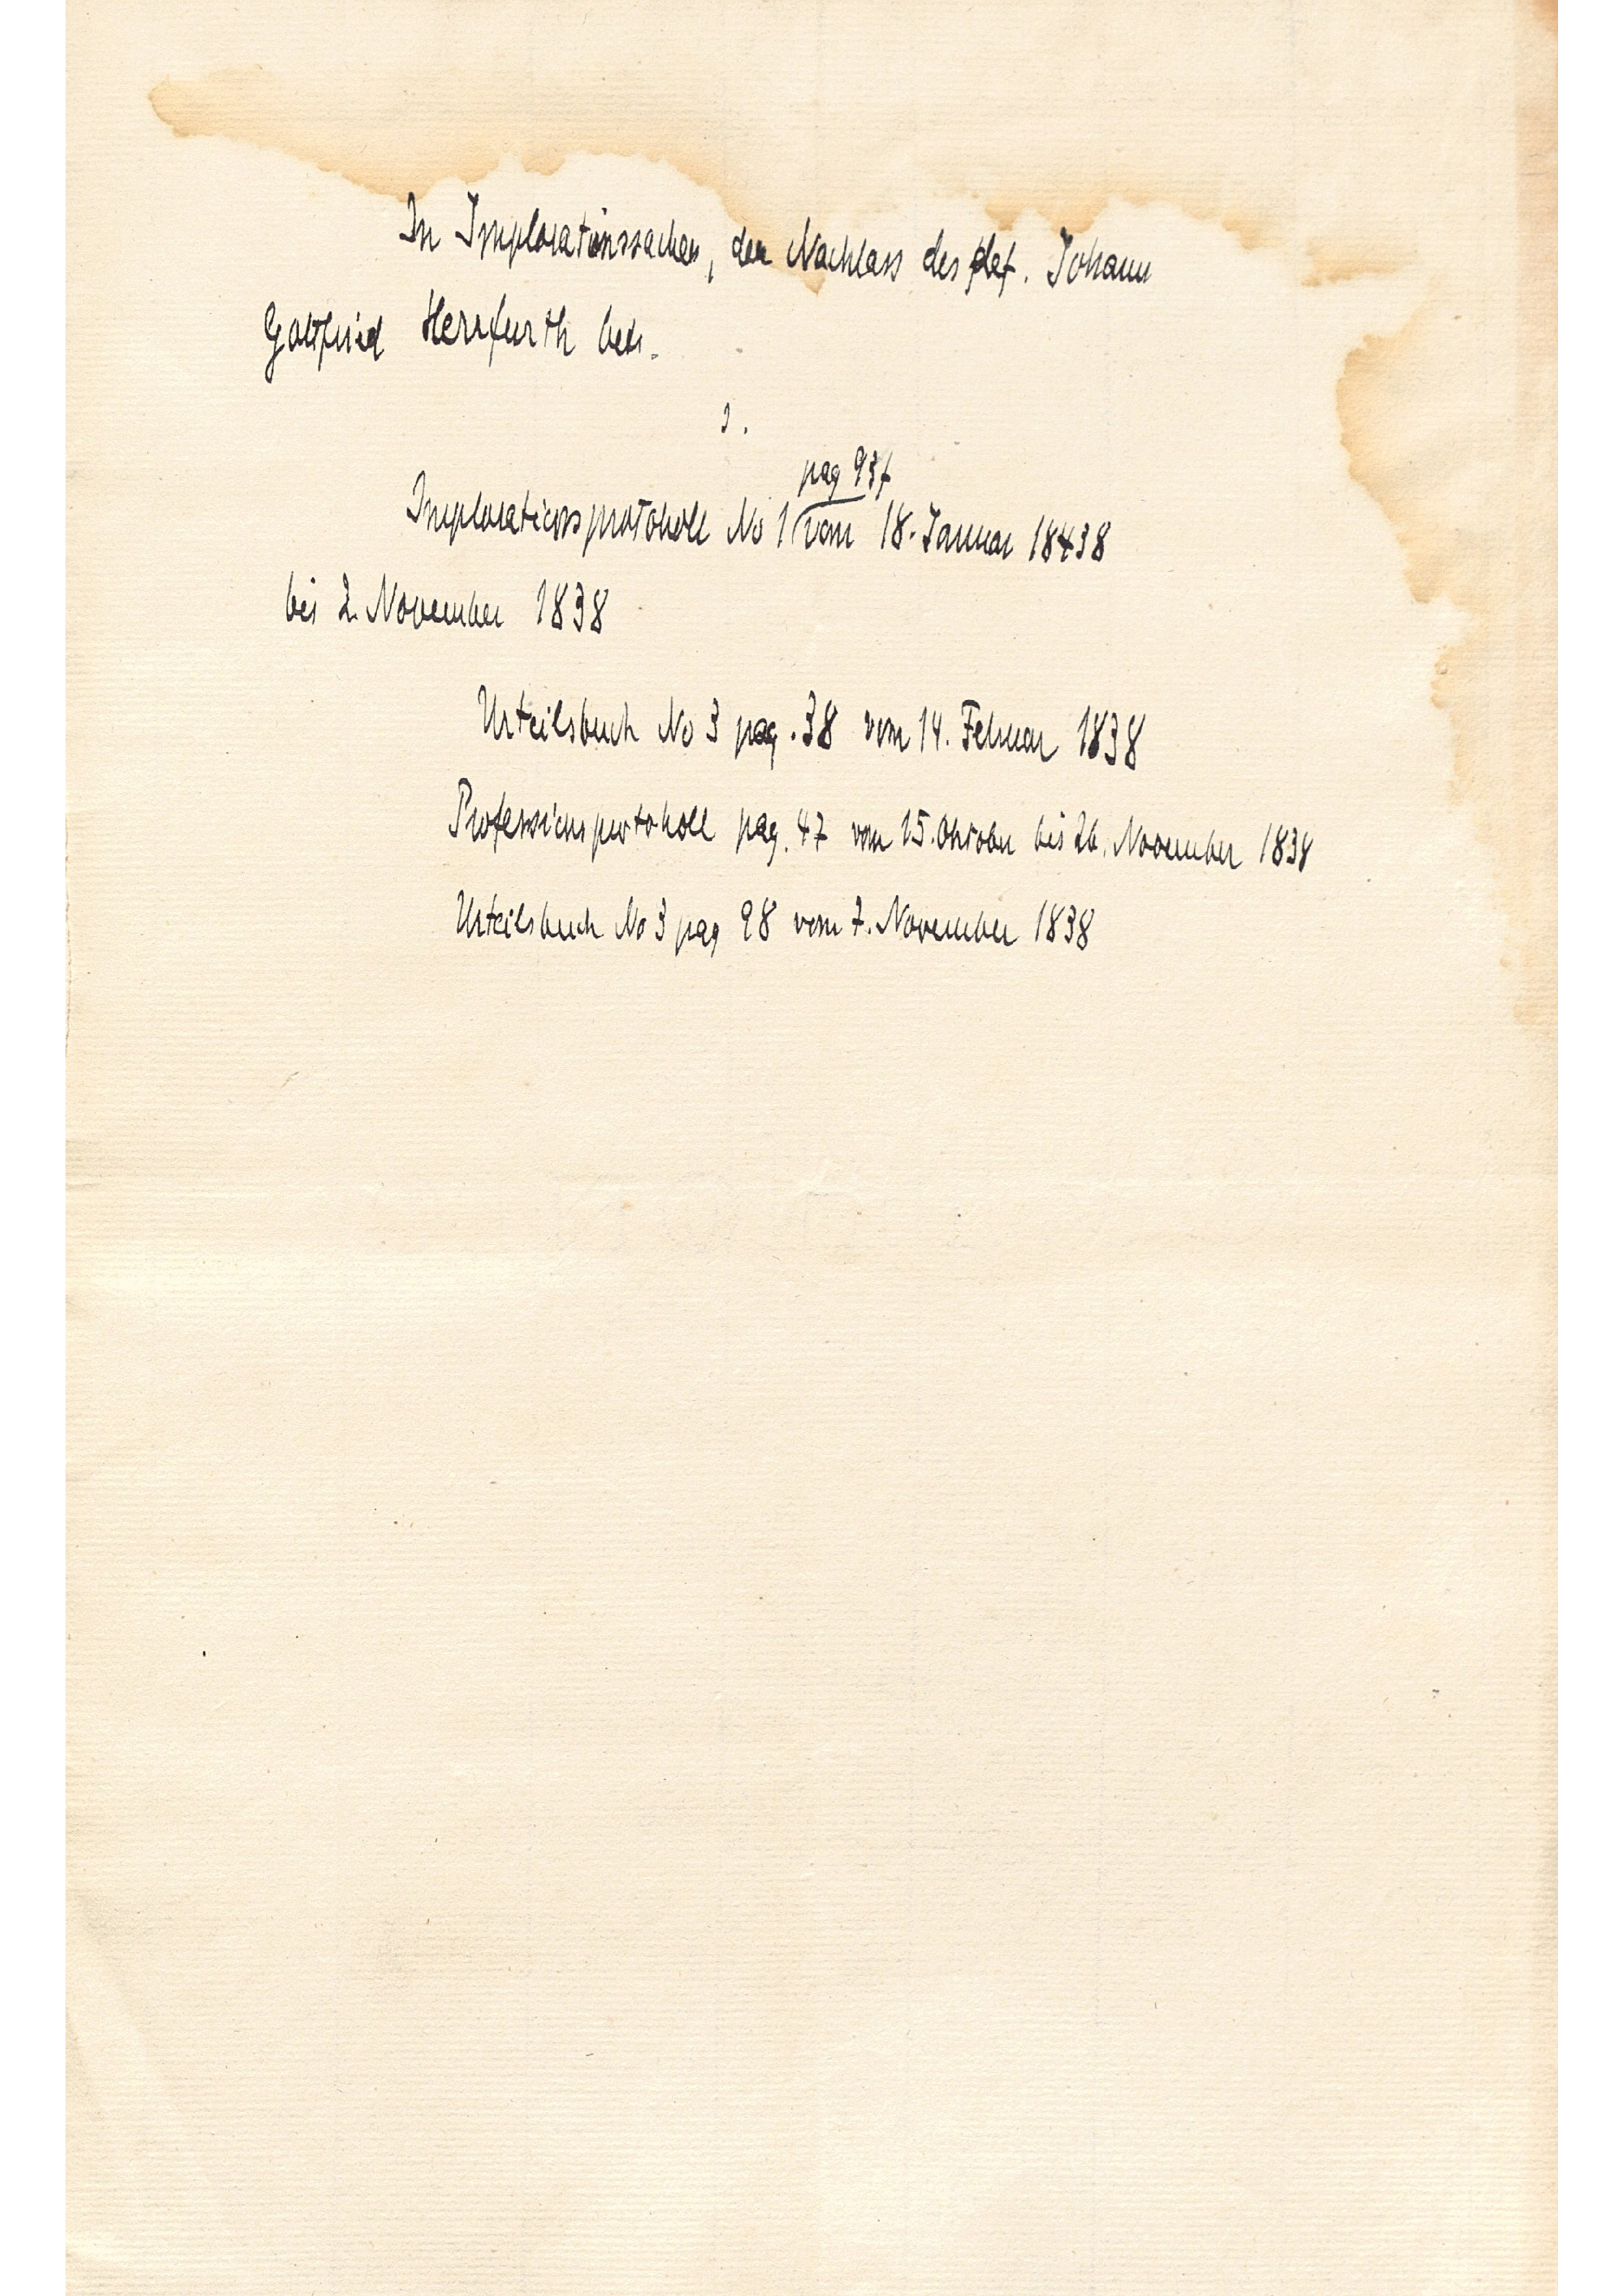 In Implorationssachen, den Nachlass des def. Johann
Gottfried Herrfurth betr.
1.
pag 937
Implorationsprotokoll No 1 vom 18. Januar 1838
bis 2. November 1838
Urteilsbuch No 3 pag. 38 vom 14. Februar 1838
Professionsprotokoll pag. 47 vom 15. Oktober bis 26. November 1838
Urteilsbuch No 3 pag 98 vom 7. November 1838